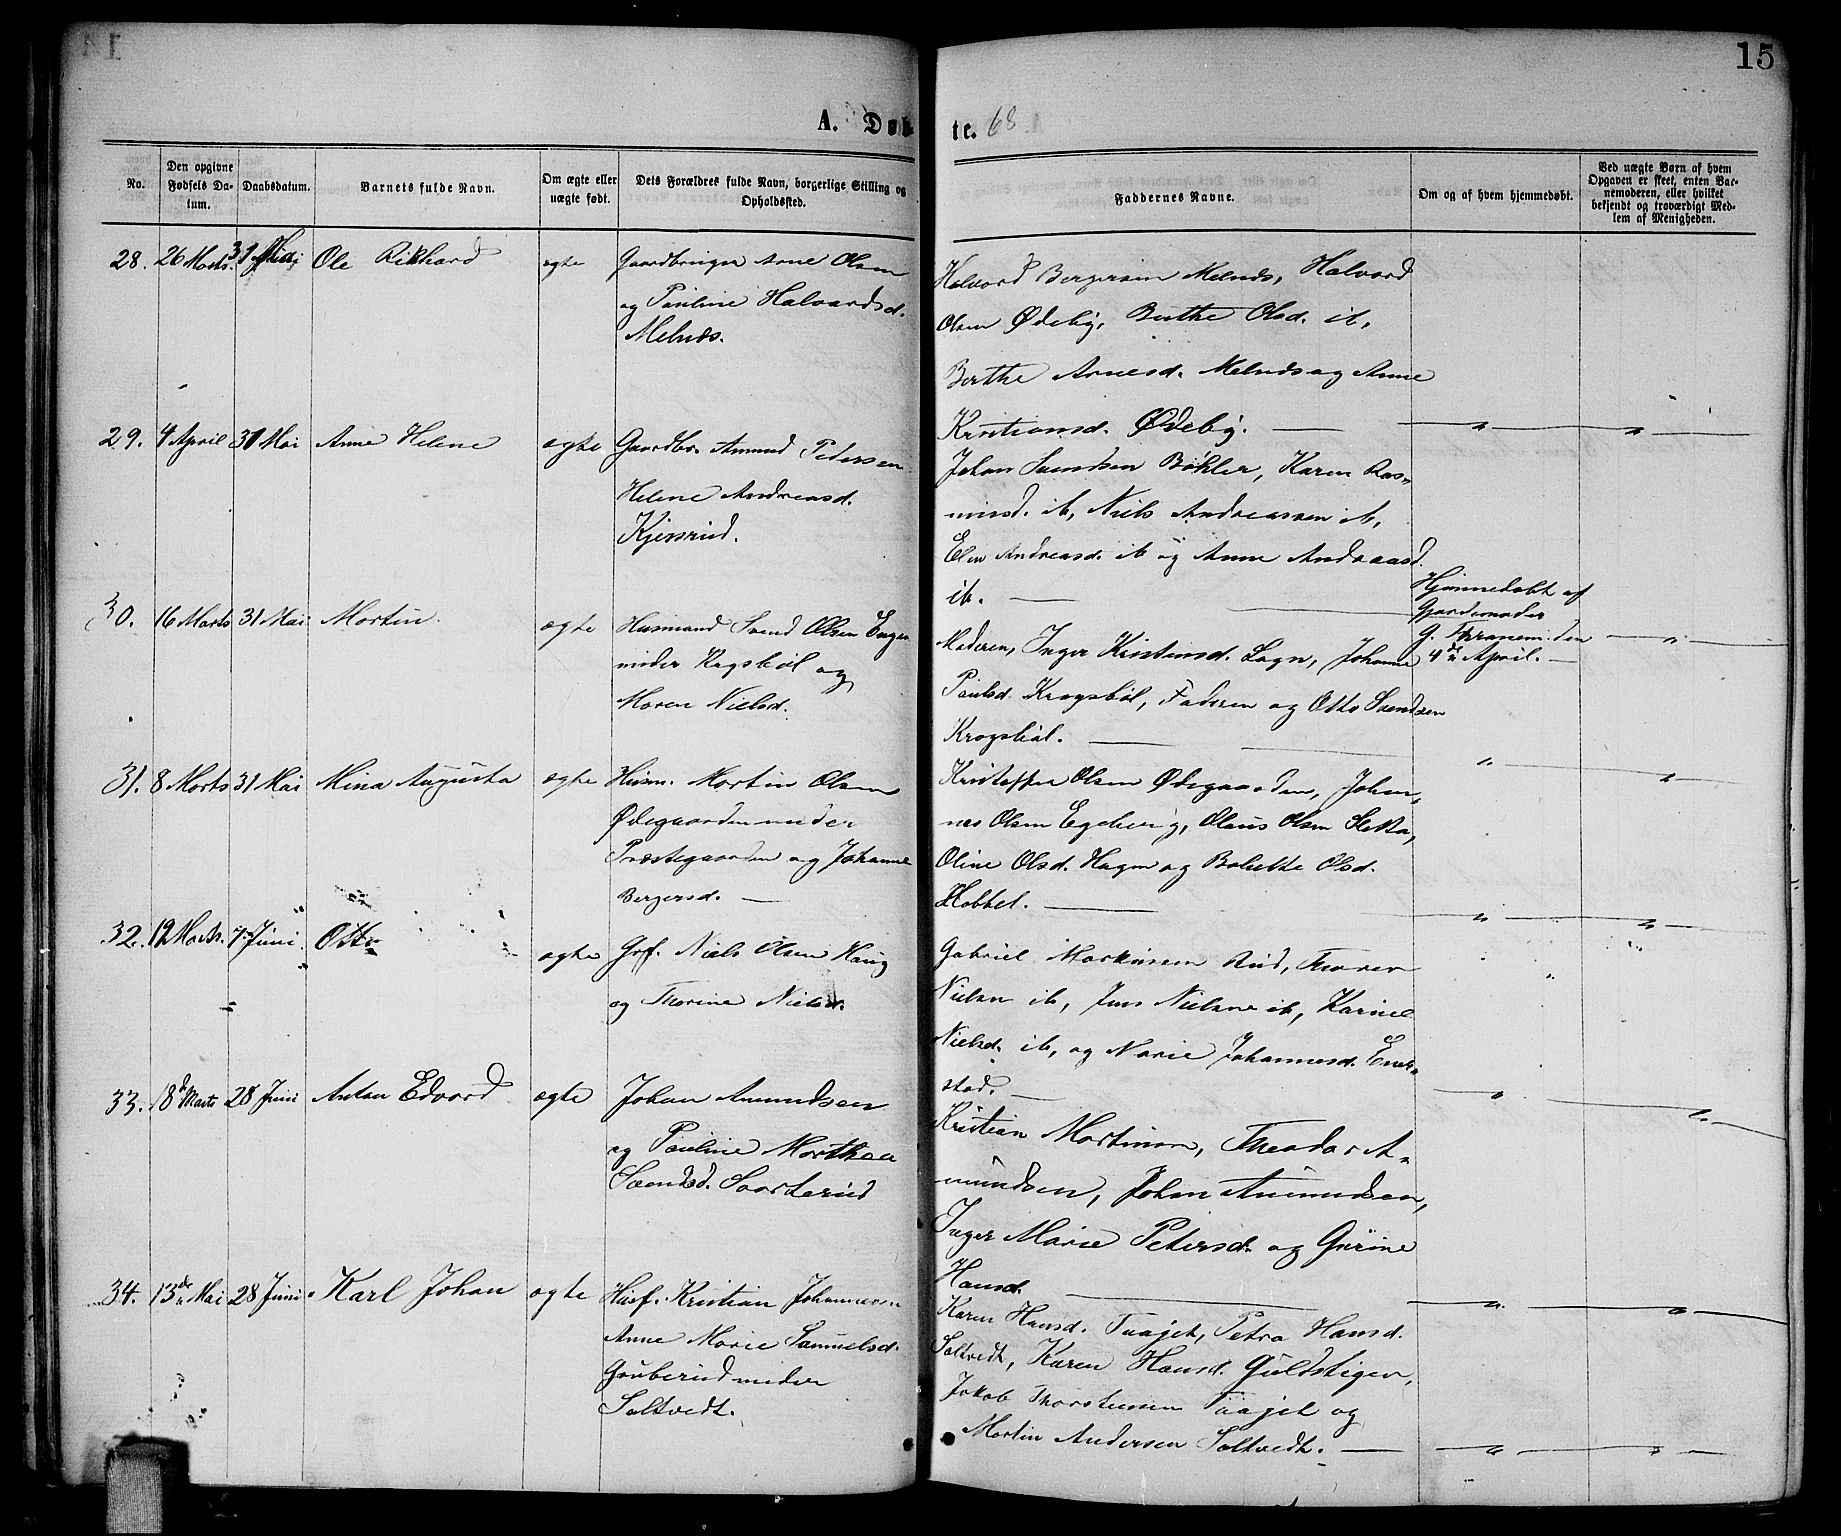 15
A. Døb-
te. 68
No.
Den opgivne Fødsels Da-
tum.
Daabsdatum.
Barnets fulde Navn.
Om ægte eller uægte født.
Dets Forældres fulde Navn, borgerlige Stilling og Opholdssted.
Faddernes Navne.
Om og af hvem hjemmedøbt.
Ved uægte Børn af hvem
Opgaven er skeet, enten Bar-
nemoderen, eller hvilket
bekjendt og troværdigt Med-
lem af Menigheden.
28. 26 Marts. 31 Mai Ole Rikhard ægte Gaardbruger Arne Olsen
og Pauline Halvardsd.
Melnes.
Halvord Bergersen Melnæs, Halvord
Olsen Ødeby, Berthe Olsd. ib,
Berthe Arnesd. Melnæs og Anne
Kristiansd. Ødeby. — " — " —
29. 4 April 31 Mai Anne Helene ægte Gaardbr. Amund Pedersen
Helene Andreasd.
Kjersrud.
Johan Svendsen Bøhler, Karen Ras-
musd. ib, Niels Andreassen ib,
Elen Andreasd. ib og Anne Andreasd.
ib. —
30. 16 Marts 31 Mai Martin ægte Husmand Svend Olsen Engen
under Kragsbøl og
Maren Nielsd.
Moderen, Inger Kristensd. Sogn, Johanne
Paulsd. Kragsbøl, Faderen og Otto Svendsen
Kragsbøl. —
Hjemmedøbt af
Gjordemoder
den
4de April. — " —
31. 8 Marts 31 Mai Mina Augusta ægte Husm. Martin Olsen
Ødegaarden under
Præstegaarden og Johanne
Bergersd. —
Kristoffer Olsen Ødegaarden, Johan-
nes Olsen Egeberg, Olaus Olsen Sletta,
Oline Olsd. Hagen og Bolette Olsd.
Kobbel. — " — " —
32. 12 Marts. 7 Juni Otto ægte Grf. Niels Olsen Haug
og Thorine Nielsd.
Gabriel Markussen Rud, Thorer
Nielsen ib, Jens Nielsen ib, Karine
Nielsd. ib, og Marie Johannesd. Ener-
stad. — " — " —
33. 18de Marts 28 Juni Anton Edvard ægte Johan Amundsen
og Pauline Marthea
Svendsd. Svarterud
Kristian Martinsen, Theodor A-
mundsen, Johan Amundsen,
Inger Marie Petersd. og Gurine
Hansd. — " — " —
34. 15de Mai 28 Juni Karl Johan ægte Husf. Kristian Johannesen
Anne Marie Samuelsd.
Gruberud under
Soltvedt.
Karen Hansd. Taajet, Petra Hansd.
Soltvedt, Karen Hansd. Guldstigen,
Jakob Thorstensen Taajet og
Martin Andersen Soltvedt. — " — " —